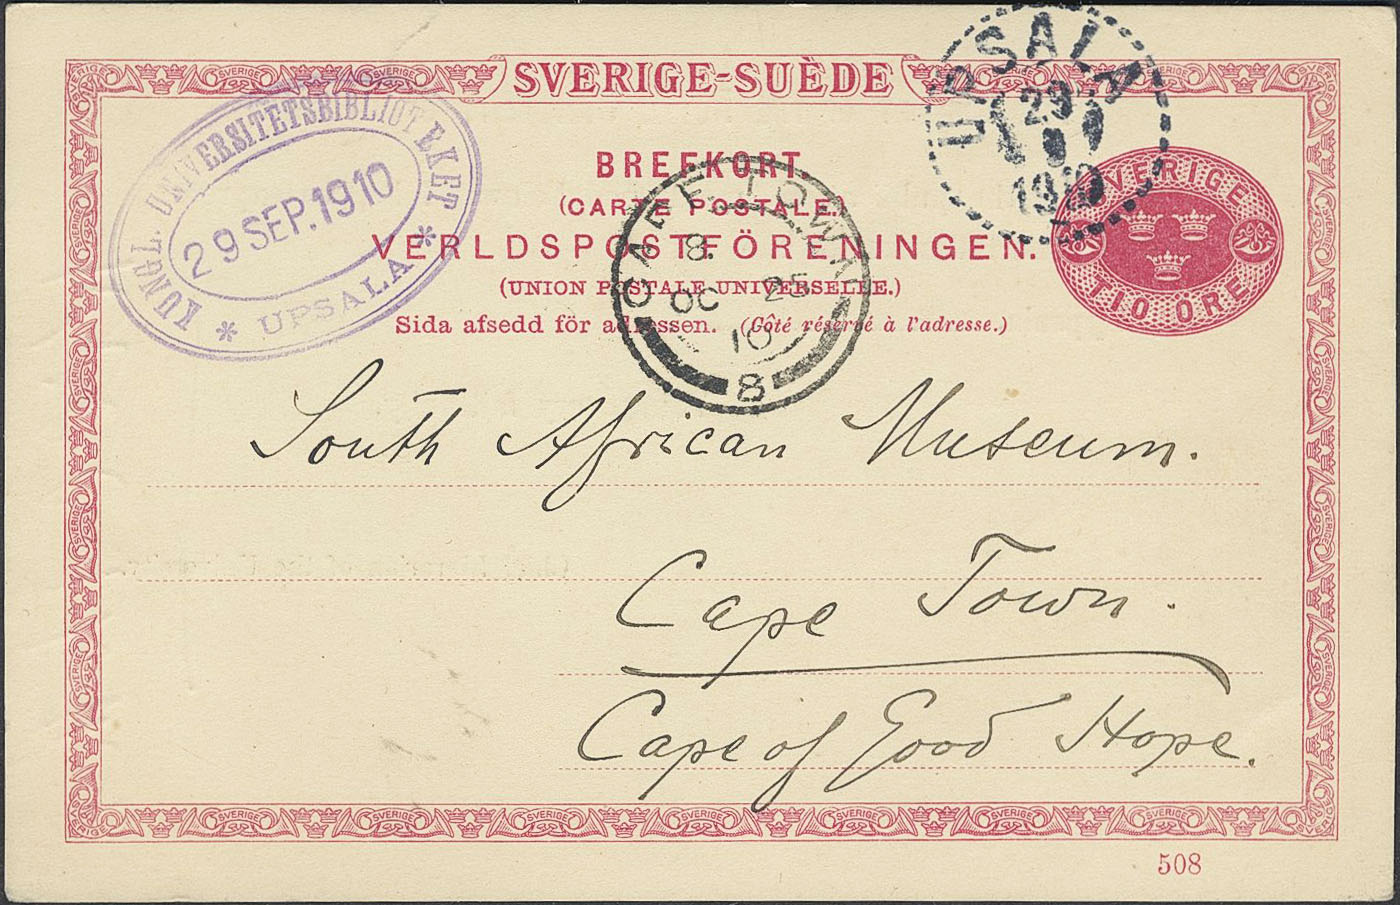 SVERIGE-SUÈDE
BREFKORT
(CARTE POSTALE.)
VERLDSPOSTFÖRENINGEN.
(UNION POSTALE UNIVERSELLE.)
Sida afsedd för adressen. (Côté réservé à l'adresse.)
KUNGL. UNIVERSITETSBIBLIOTEKET
29 SEP. 1910
* UPSALA *
UPSALA
29
1910
SVERIGE
TIO ÖRE
CAPE TOWN
8.
OC 25
10
8
South African Museum.
Cape Town.
Cape of Good Hope.
508